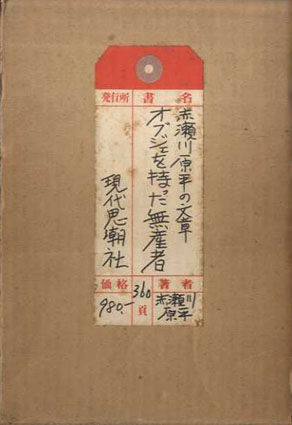 書名
赤瀬川原平の文章
オブジェを持った無産者
著者
赤瀬川
原平
360
頁
発行所
現代思潮社
価格
980.-